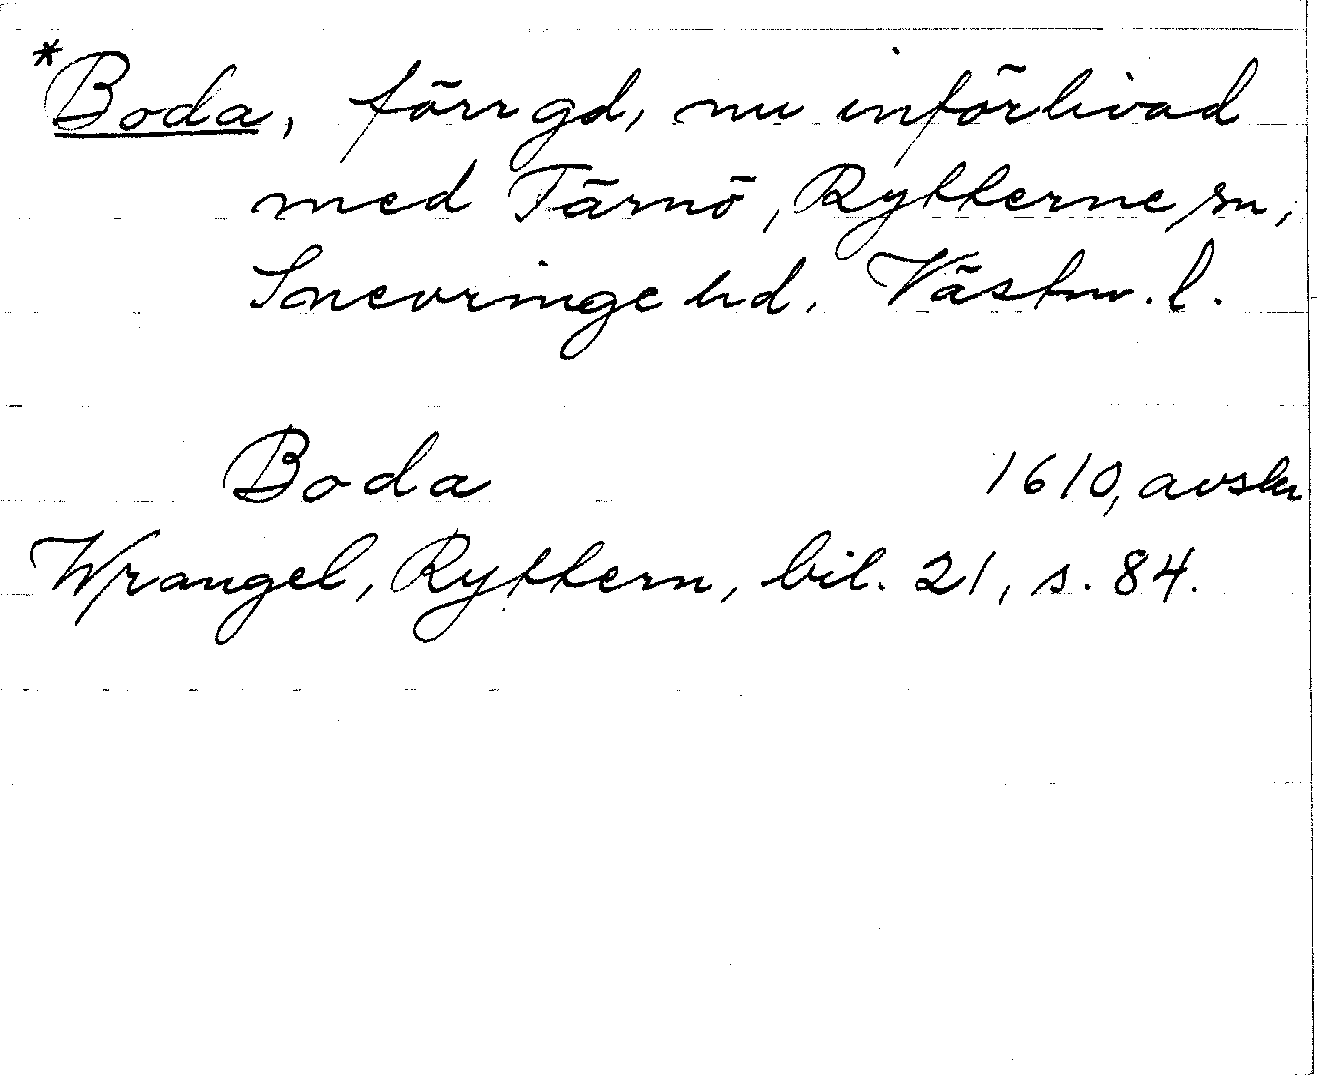 *Boda, förr gd, nu införlivad
med Tärnö, Rytterne sn,
Snevringe hd. Västm. l.
Boda 1610, avskr
Wrangel, Ryttern, bil. 21, s. 84.